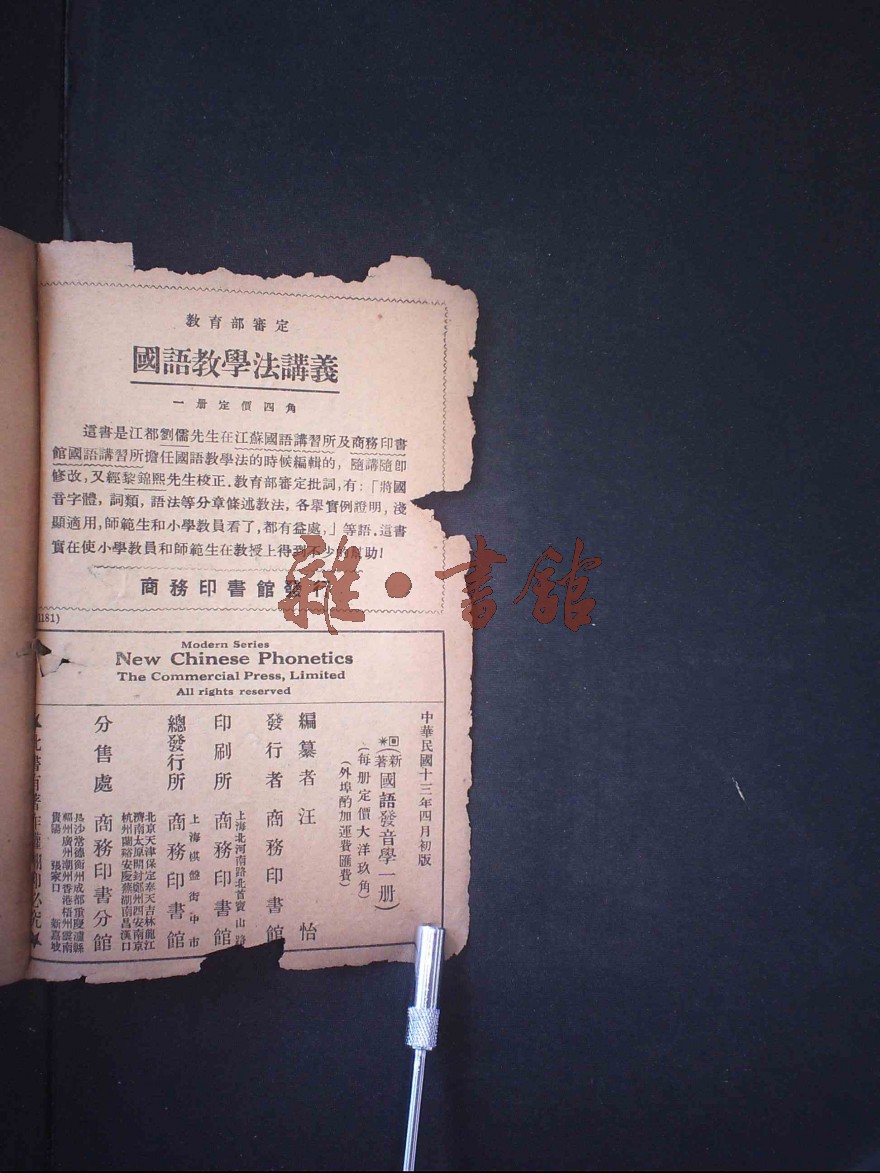 教育部審定
國語教學法講義
一册定價四角
這書是江都劉儒先生在江蘇國語講習所及商務印書
館國語講習所擔任國語教學法的時候編輯的，隨講隨卽
修改，又經黎錦熙先生校正．教育部審定批詞，有：「將國
音字體，詞類，語法等分章條述教法，各舉實例證明，淺
顯適用，師範生和小學教員看了，都有益處，」等語．這書
實在使小學教員和師範生在教授上得到不少的幫助！
商務印書館發行
雜·書館
181)
Modern Series
New Chinese Phonetics
The Commercial Press, Limited
All rights reserved
中華民國十三年四月初版
(新著國語發音學一册)
(每册定價大洋玖角)
(外埠酌加運費匯費)
編纂者 汪怡
發行者 商務印書館
上海北河南路北首寶山路
印刷所 商務印書館
上海棋盤街中市
總發行所 商務印書館
北京天津保定奉天吉林龍江
濟南太原開封鄭州西安南京
杭州蘭谿安慶蕪湖南昌漢口
分售處 商務印書分館
長沙常德衡州成都重慶瀘縣
福州廣州潮州香港梧州雲南
貴陽 張家口 新嘉坡
此書有著作權翻印必究